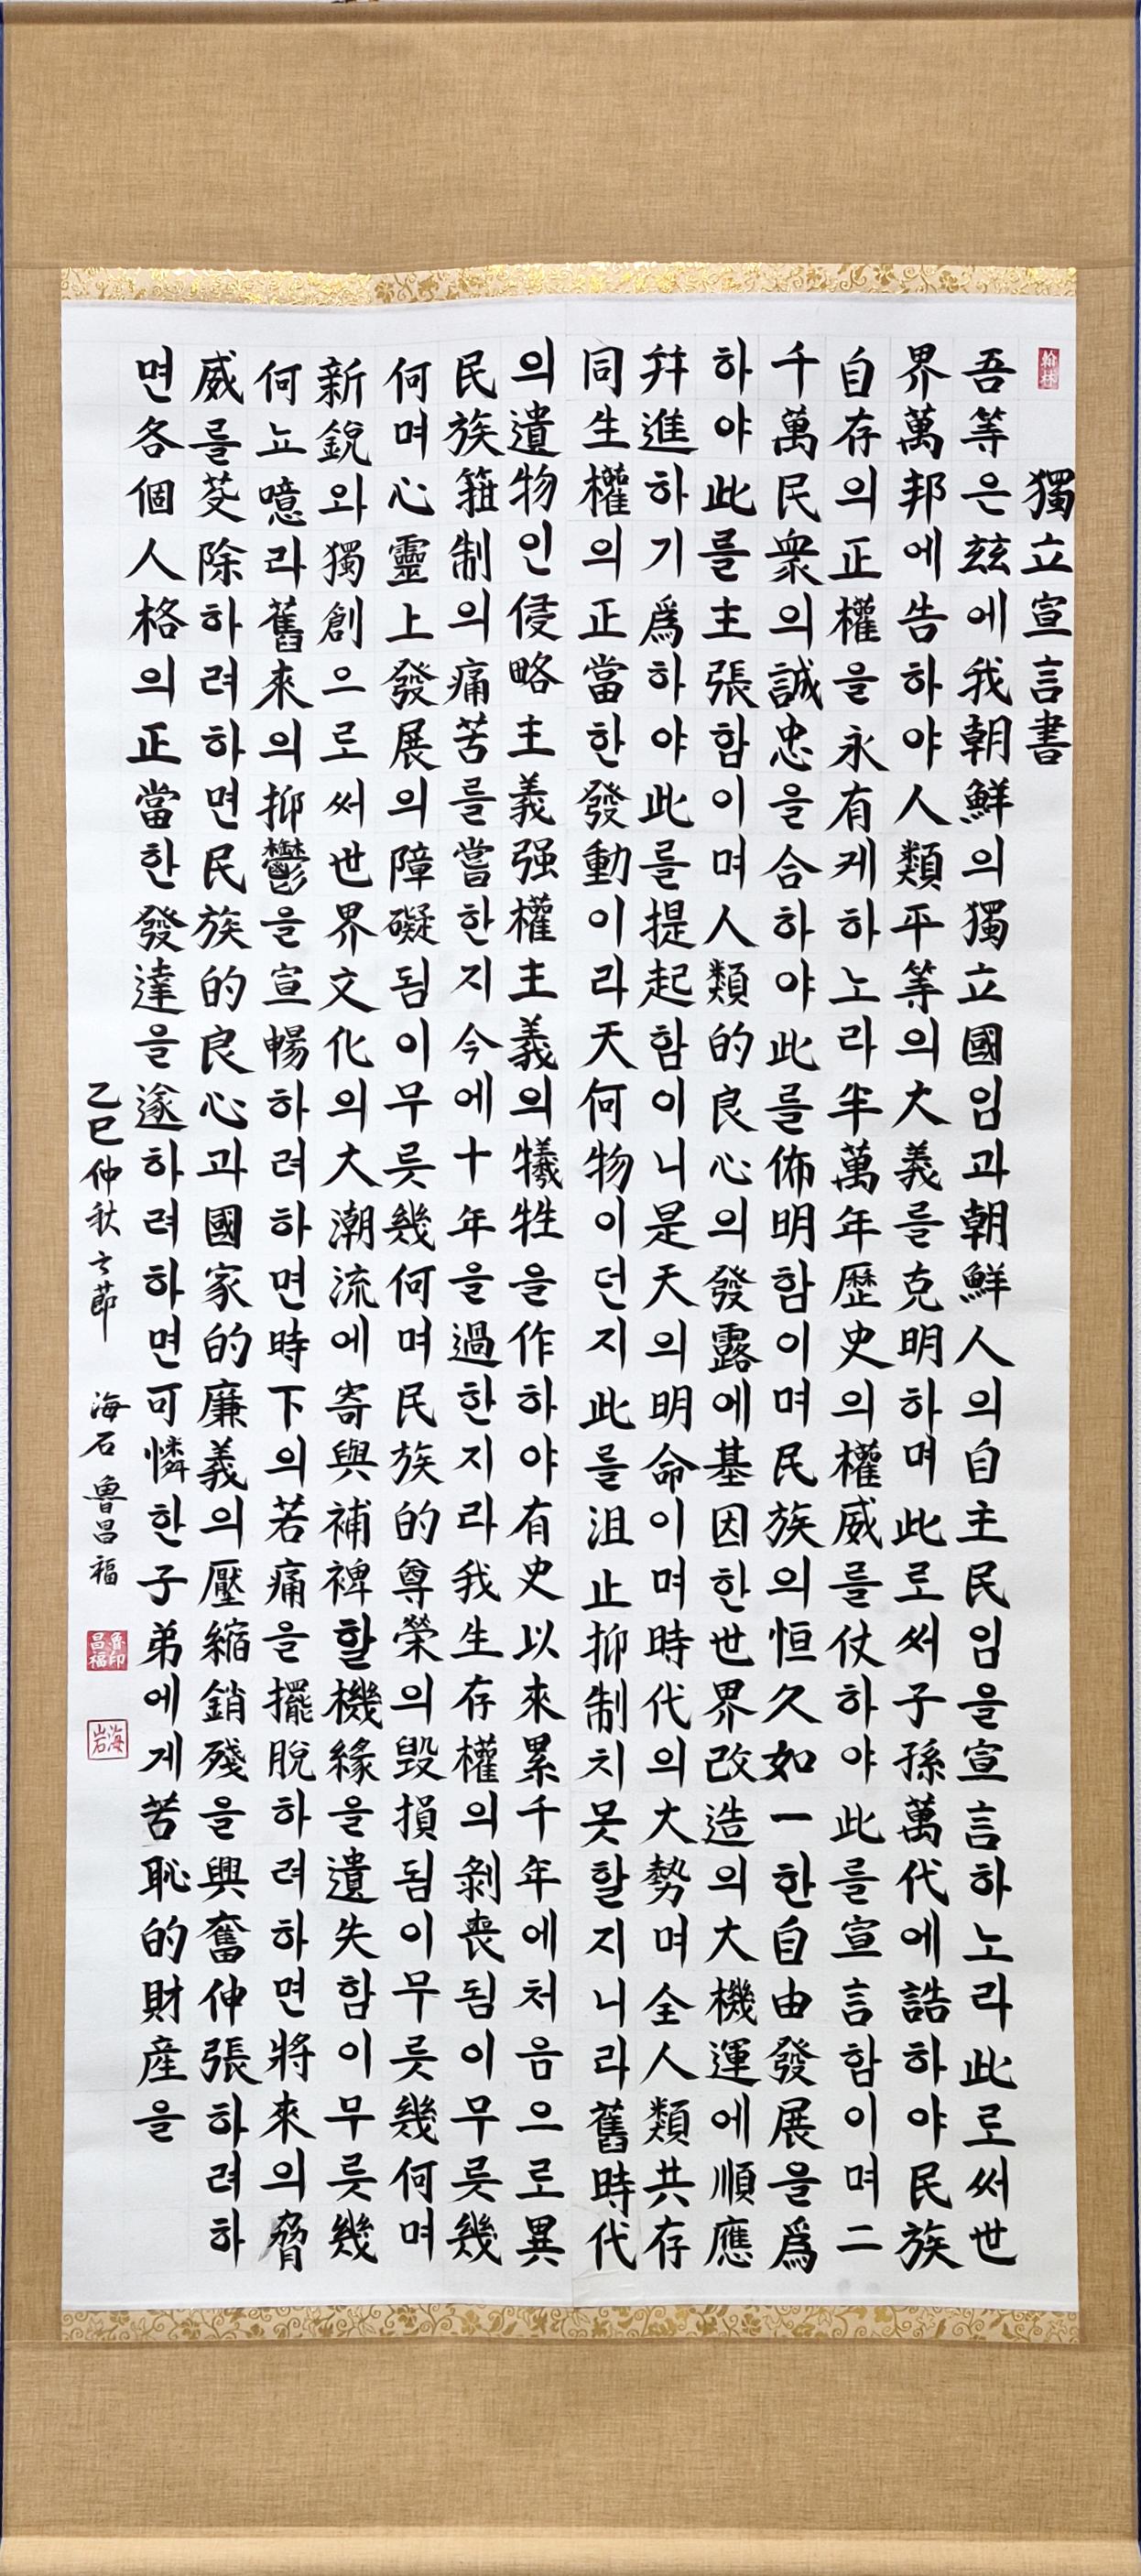 翰林
獨立宣言書
吾等은玆에我朝鮮의獨立國임과朝鮮人의自主民임을宣言하노라此로써世
界萬邦에告하야人類平等의大義를克明하며此로써子孫萬代에誥하야民族
自存의正權을永有케하노라半萬年歷史의權威를仗하야此를宣言함이며二
千萬民衆의誠忠을合하야此를佈明함이며民族의恒久如一한自由發展을爲
하야此를主張함이며人類的良心의發露에基因한世界改造의大機運에順應
幷進하기爲하야此를提起함이니是天의明命이며時代의大勢며全人類共存
同生權의正當한發動이라天何物이던지此를沮止抑制치못할지니라舊時代
의遺物인侵略主義强權主義의犧牲을作하야有史以來累千年에처음으로異
民族箝制의痛苦를嘗한지今에十年을過한지라我生存權의剝喪됨이무릇幾
何며心靈上發展의障礙됨이무릇幾何며民族的尊榮의毁損됨이무릇幾何며
新銳와獨創으로써世界文化의大潮流에寄與補裨할機緣을遺失함이무릇幾
何뇨噫라舊來의抑鬱을宣暢하려하면時下의苦痛을擺脫하려하면將來의脅
威를芟除하려하면民族的良心과國家的廉義의壓縮銷殘을興奮伸張하려하
면各個人格의正當한發達을遂하려하면可憐한子弟에게苦恥的財産을
乙巳仲秋之節 海石 魯昌福
魯印昌福
海岩